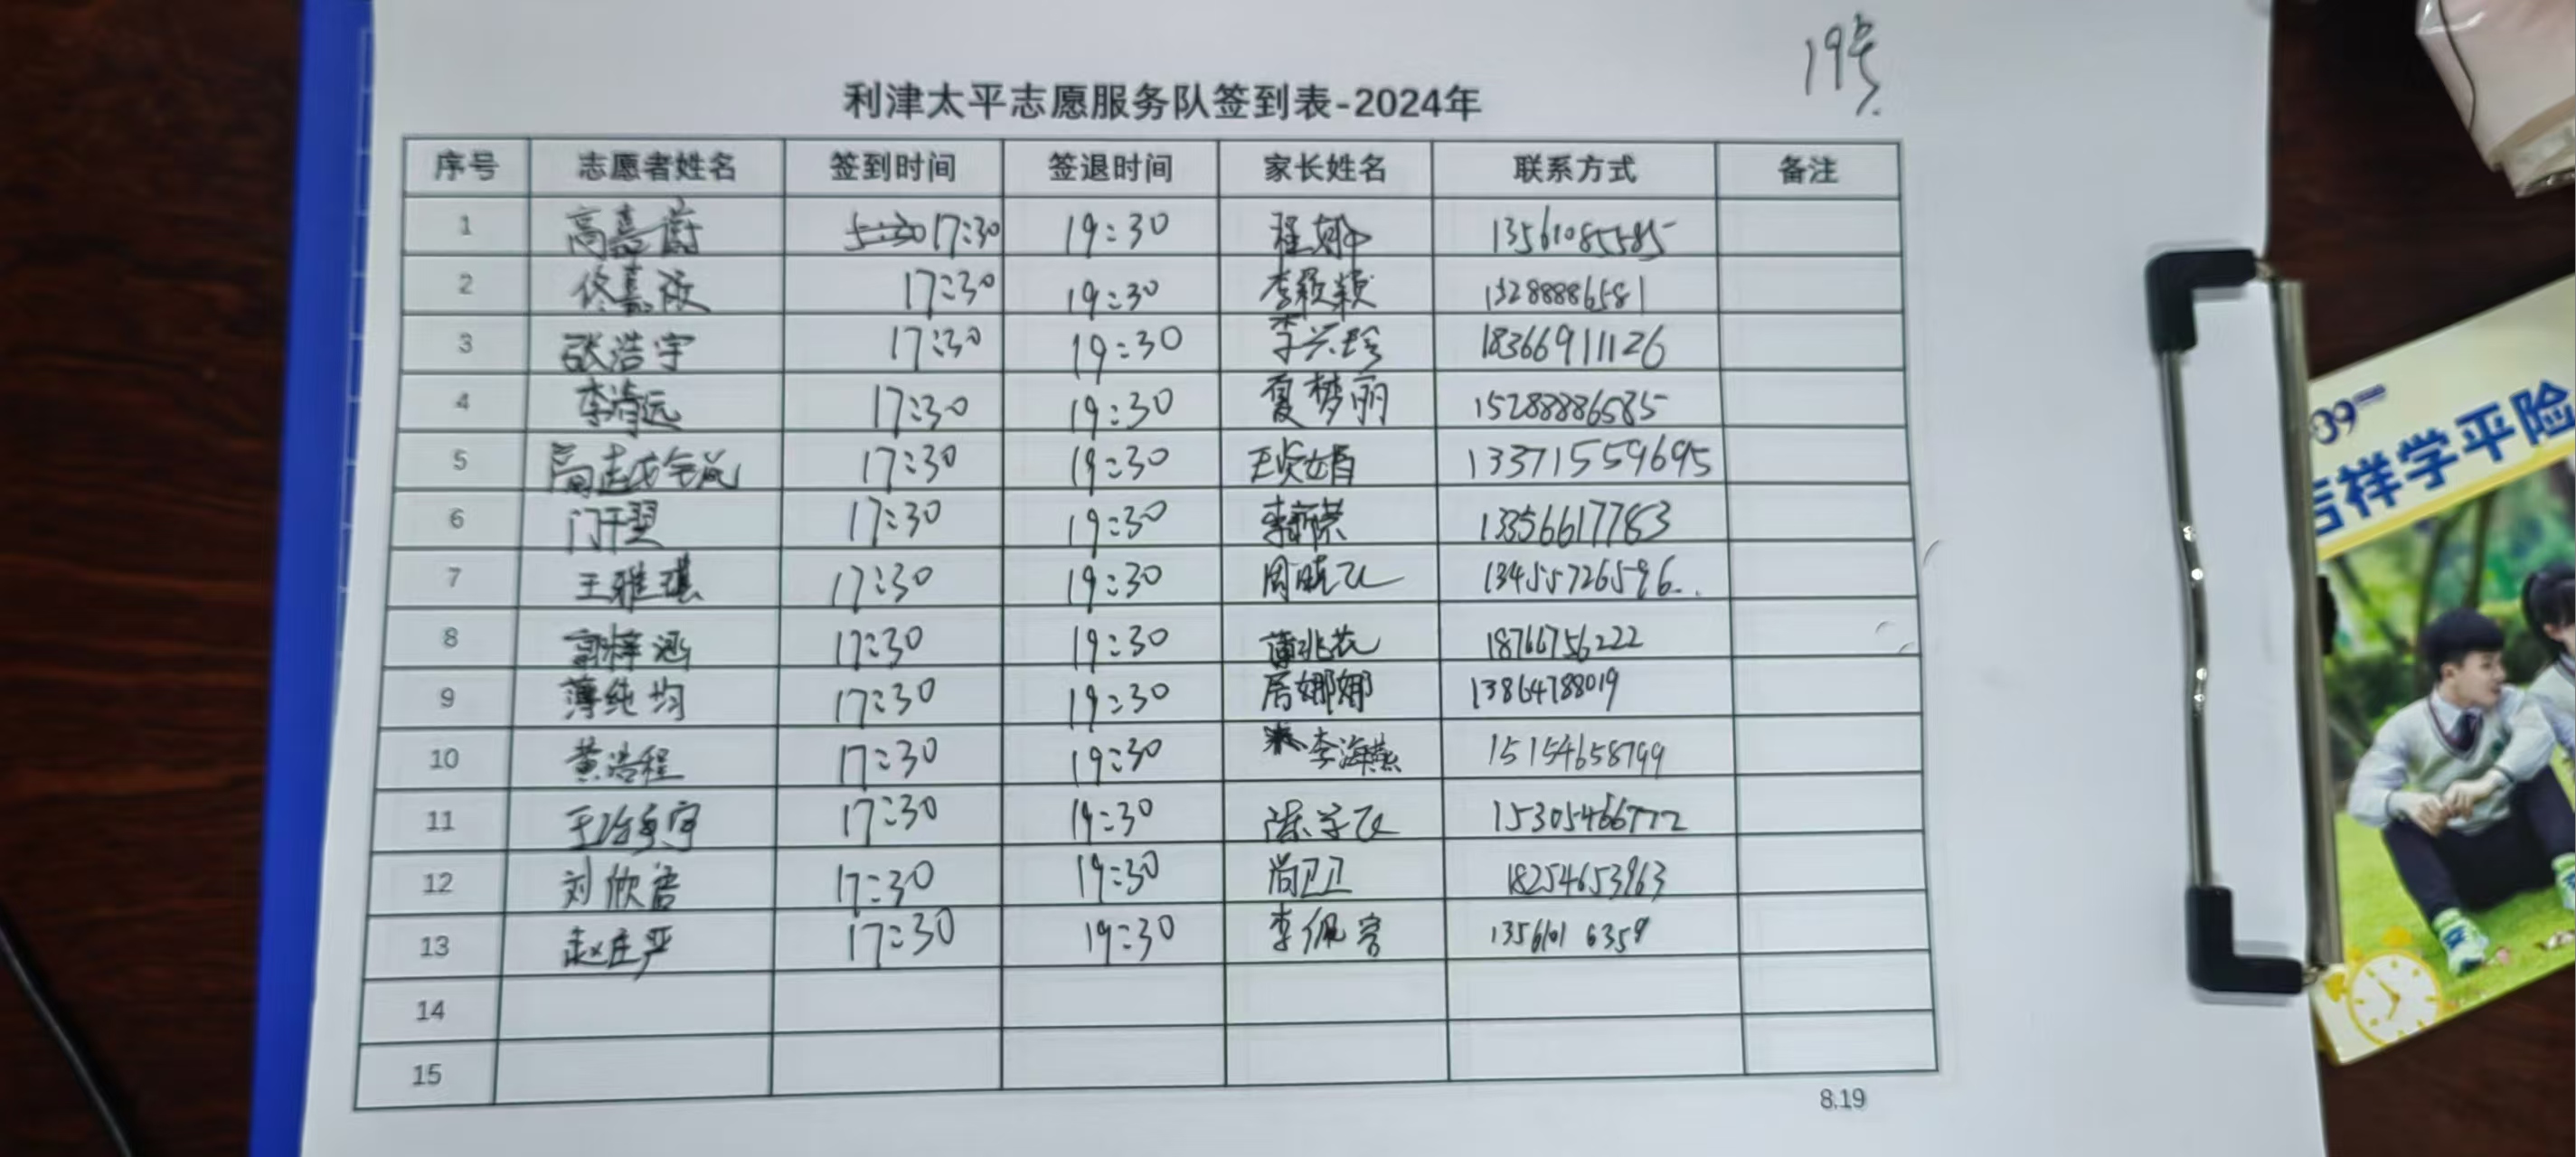 19号
利津太平志愿服务队签到表-2024年
序号 志愿者姓名 签到时间 签退时间 家长姓名 联系方式 备注
1 高嘉蔚 17:30 19:30 程娜 13561085585
2 佟嘉 17:30 19:30 李颖颖 13288886581
3 张浩宇 17:30 19:30 李兴珍 18366911126
4 李清远 17:30 19:30 夏梦丽 15288886585
5 17:30 19:30 13371559695
6 门于翌 17:30 19:30 13356617783
7 王雅琪 17:30 19:30 周晓飞 13455726596
8 郭梓涵 17:30 19:30 薄兆花 18766756222
9 薄纯均 17:30 19:30 居娜娜 13864788019
10 黄浩程 17:30 19:30 李海燕 15154658799
11 17:30 19:30 陈学飞 15305466772
12 刘欣语 17:30 19:30 尚卫卫 18254653963
13 赵庄严 17:30 19:30 李佩容 13561016359
14
15
8.19
吉样学平险